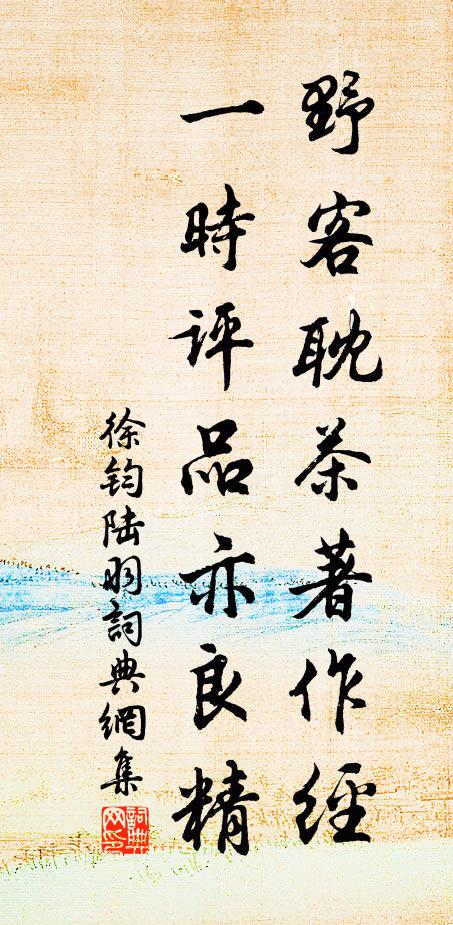 野客耽茶著作經
一時評品亦良精
徐鈞陸羽詞典網集
詞典网印